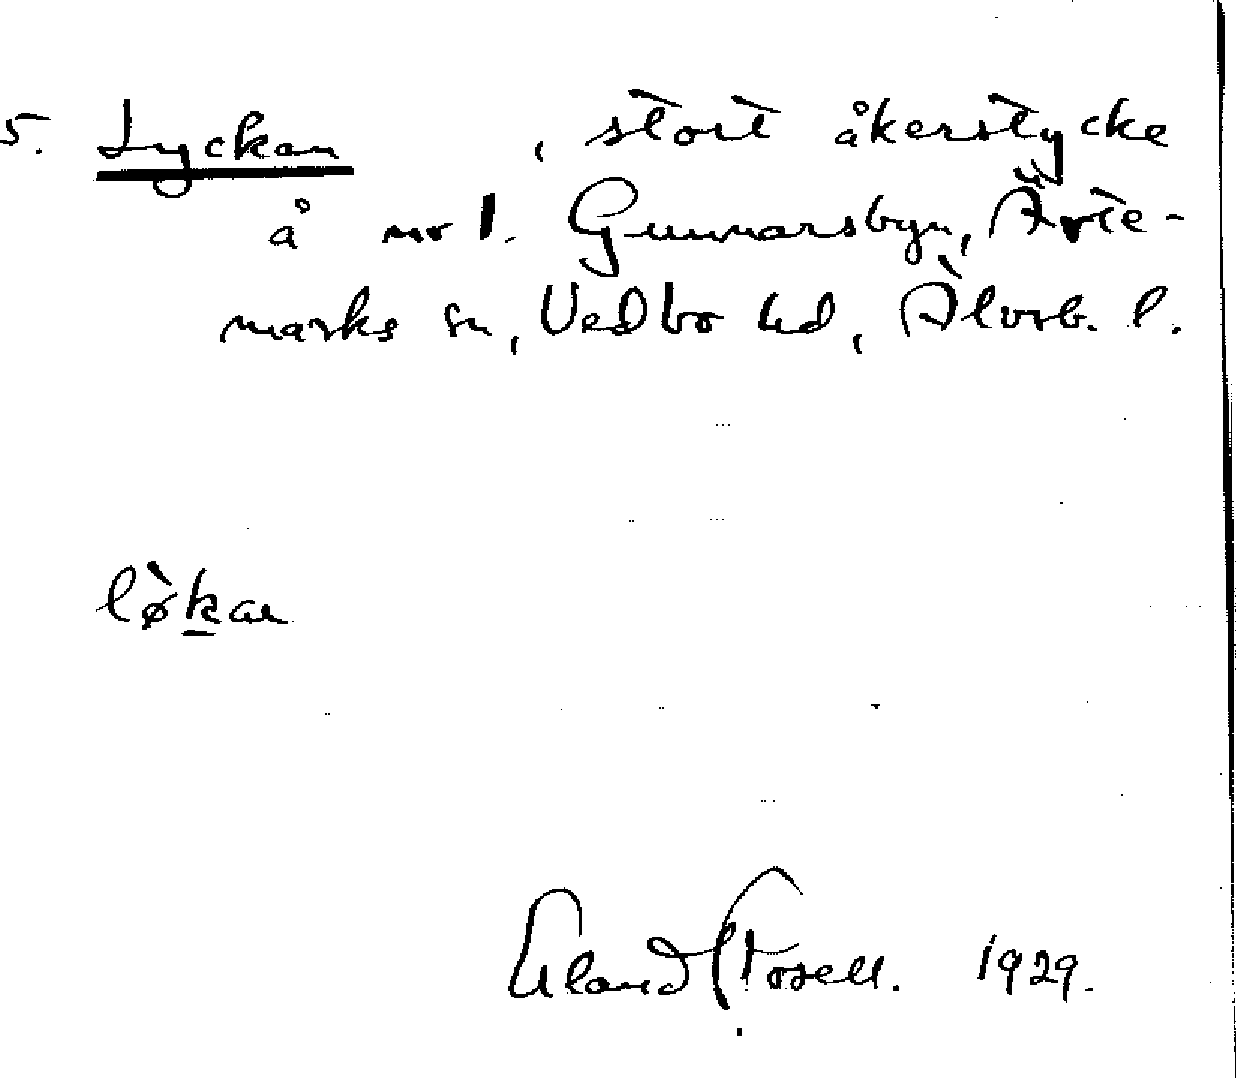 5. Lyckan , stort åkerstycke
å nr 1. Gunnarsbyn, Ärte-
marks sn, Vedbo hd, Älvsb. l.
lø̀kan
Erland Rosell. 1929.